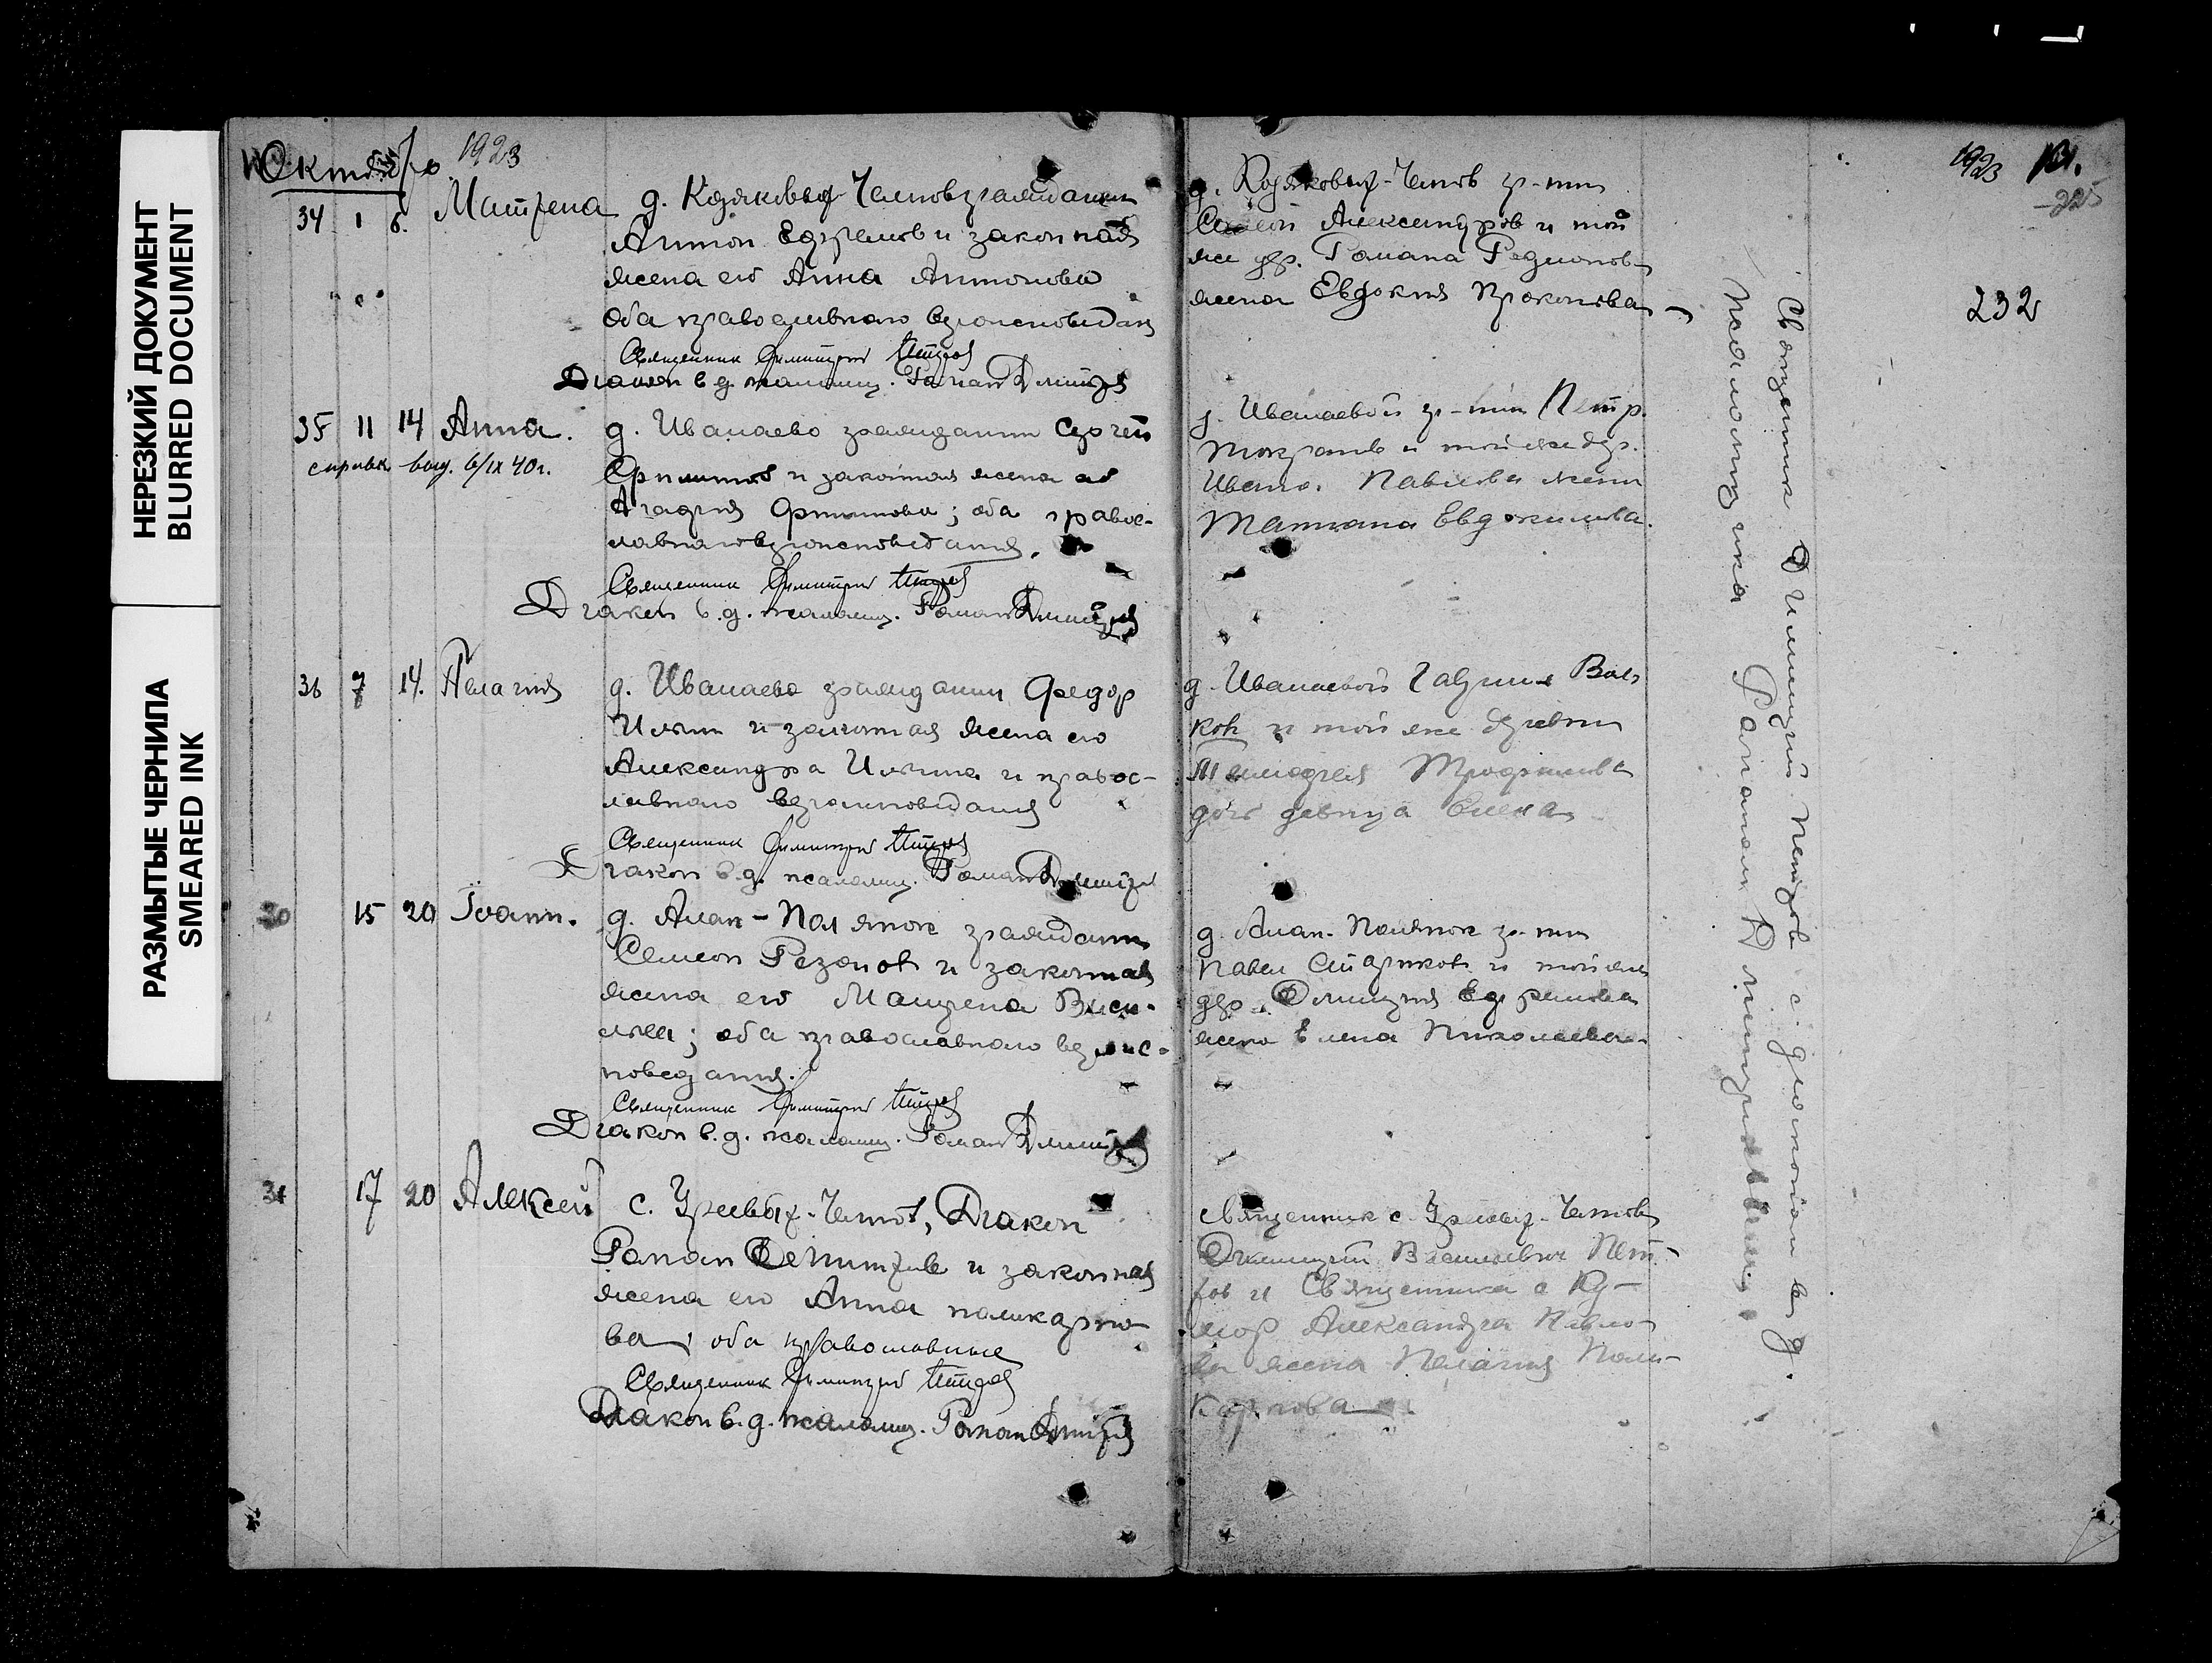 НЕРЕЗКИЙ ДОКУМЕНТ
BLURRED DOCUMENT
РАЗМЫТЫЕ ЧЕРНИЛА
SMEARED INK
Октябрь 1923
34 1 6. Матрена д. Коряковых-Челнов гражданин
Антон Ефремов и законная
жена его Анна Антонова
оба православного вероисповедания
Священник Димитрий Петров
Диакон в д. псаломщ. Роман Дмитриев
35 11 14 Анна. д. Иванаево гражданин Сергей
справк. выд. 6/IX 40 г.
Филиппов и законная жена его
Агафия Филиппова; оба правос-
лавного вероисповедания.
Священник Димитрий Петров
Диакон в. д. псаломщ. Роман Дмитриев
36 7 14. Пелагия д. Иванаево гражданин Федор
Ильин и законная жена его
Александра Ильина и правос-
лавного вероисповедания
Священник Димитрий Петров
Диакон в. д. псаломщ. Роман Дмитриев
20 15 20 Іоанн. д. Алан-Полянок гражданин
Семеон Резанов и законная
жена его Матрена Васи-
льева; оба православного вероис-
поведания.
Священник Димитрий Петров
Диакон в. д. псаломщ. Роман Дмитриев
31 17 20 Алексей с. Уреевых-Челнов, Диакон
Роман Дмитриев и законная
жена его Анна Поликарпо-
ва, оба православные
Священник Димитрий Петров
Диакон в. д. псаломщ. Роман Дмитриев
д. Коряковых-Челнов гр-нин
Александров и той
же дер. Романа Родионов
жена Евдокия Прокопова
д. Иванаевой гр-нин Петр
и той же дер.
Ивана Павлова жена
Татиана Евдокимова.
д. Иванаевой Гавриил Вол-
ков и той же деревни
Трофимова
дочь девица Елена
д. Алан-Полянок гр-нин
Павел Стариков и той же
дер. Димитрия Ефремова
жена Елена Николаева
Священник с. Уреевых-Челнов
Димитрий Васильевич Пет-
ров и Священника с
Александра Павло-
ва жена Пелагия Поли-
карпова
Священник Димитрий Петров с диаконом в д.
псаломщика Романом Дмитриевым
1923
131.
225
232